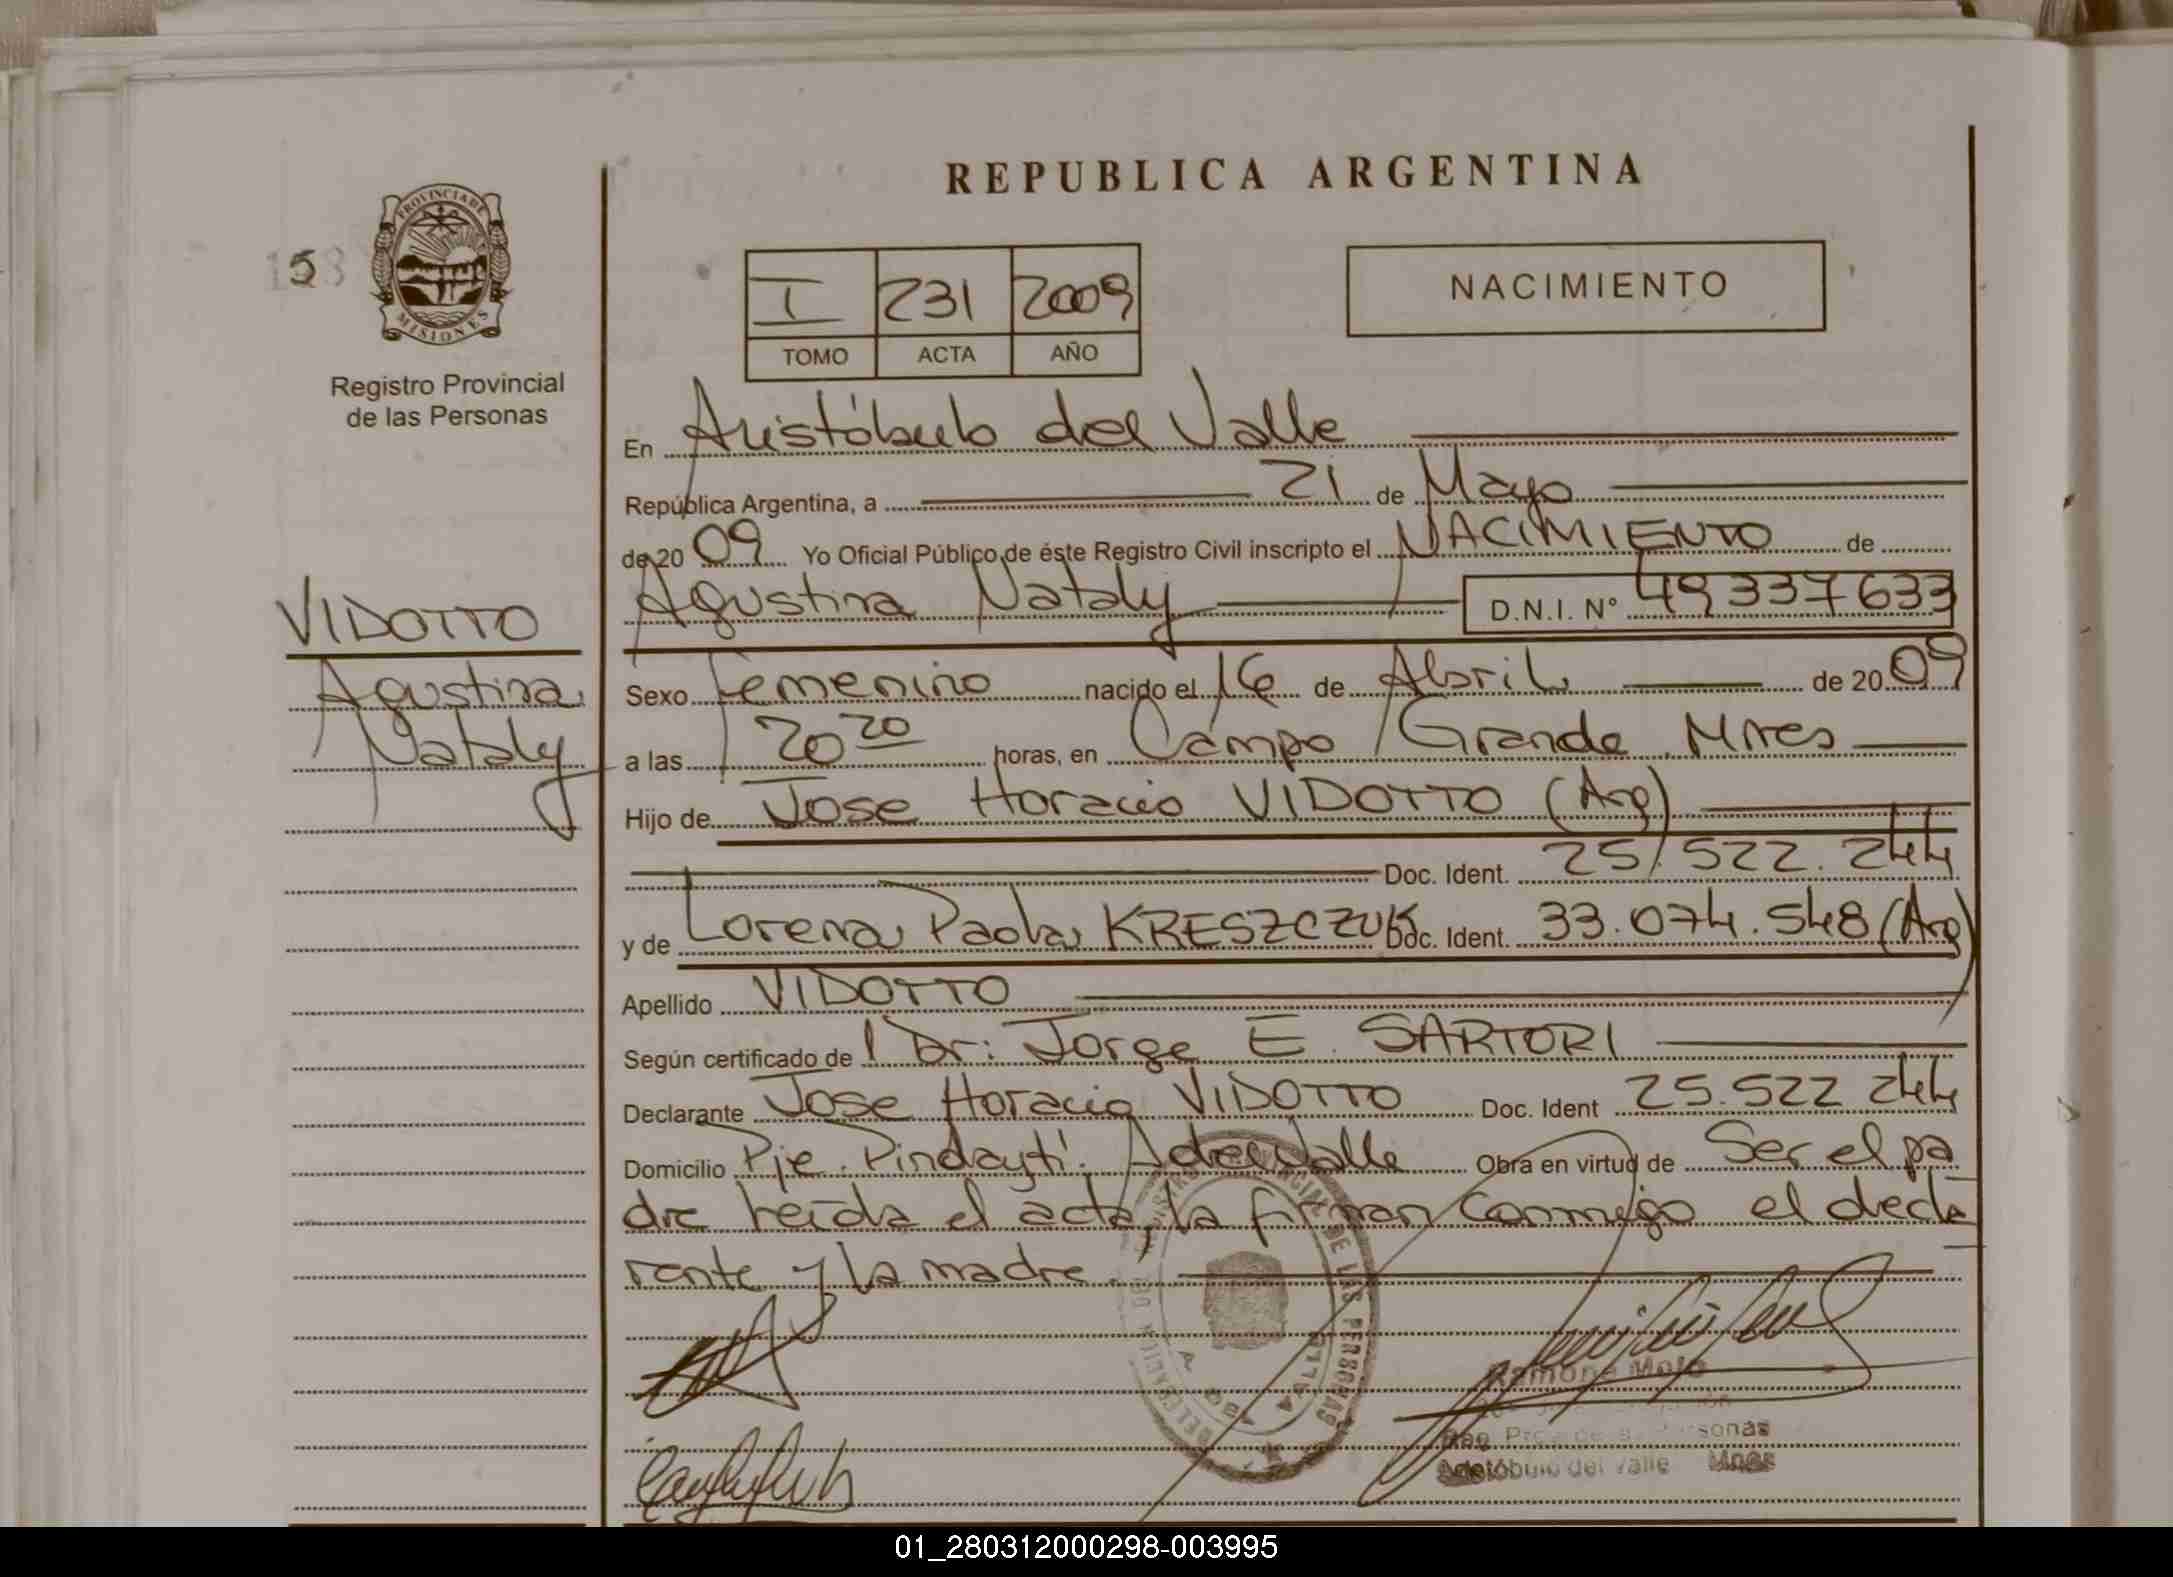 REPUBLICA ARGENTINA
PROVINCIA DE
MISIONES
Registro Provincial
de las Personas
I 231 2009
TOMO ACTA AÑO
NACIMIENTO
En Aristóbulo del Valle
República Argentina, a 21 de Mayo
de 20 09 Yo Oficial Público de éste Registro Civil inscripto el NACIMIENTO de
Agustina Nataly D.N.I. Nº 49337633
VIDOTTO
Agustina
Nataly
Sexo femenino nacido el 16 de Abril de 20 09
a las 20 20 horas, en Campo Grande, Mnes
Hijo de Jose Horacio VIDOTTO (Arg)
Doc. Ident. 25.522.244
y de Lorena Paola KRESZCZUK Doc. Ident. 33.074.548 (Arg)
Apellido VIDOTTO
Según certificado de Dr. Jorge E. SARTORI
Declarante Jose Horacio VIDOTTO Doc. Ident 25.522 244
Domicilio Pje. Pindaytí. A del Valle Obra en virtud de Ser el pa
dre leída el acta, la firman conmigo el decla
rante y la madre.
DE LAS PERSONAS
Ramona
Aristóbulo del Valle Mnes
01_280312000298-003995